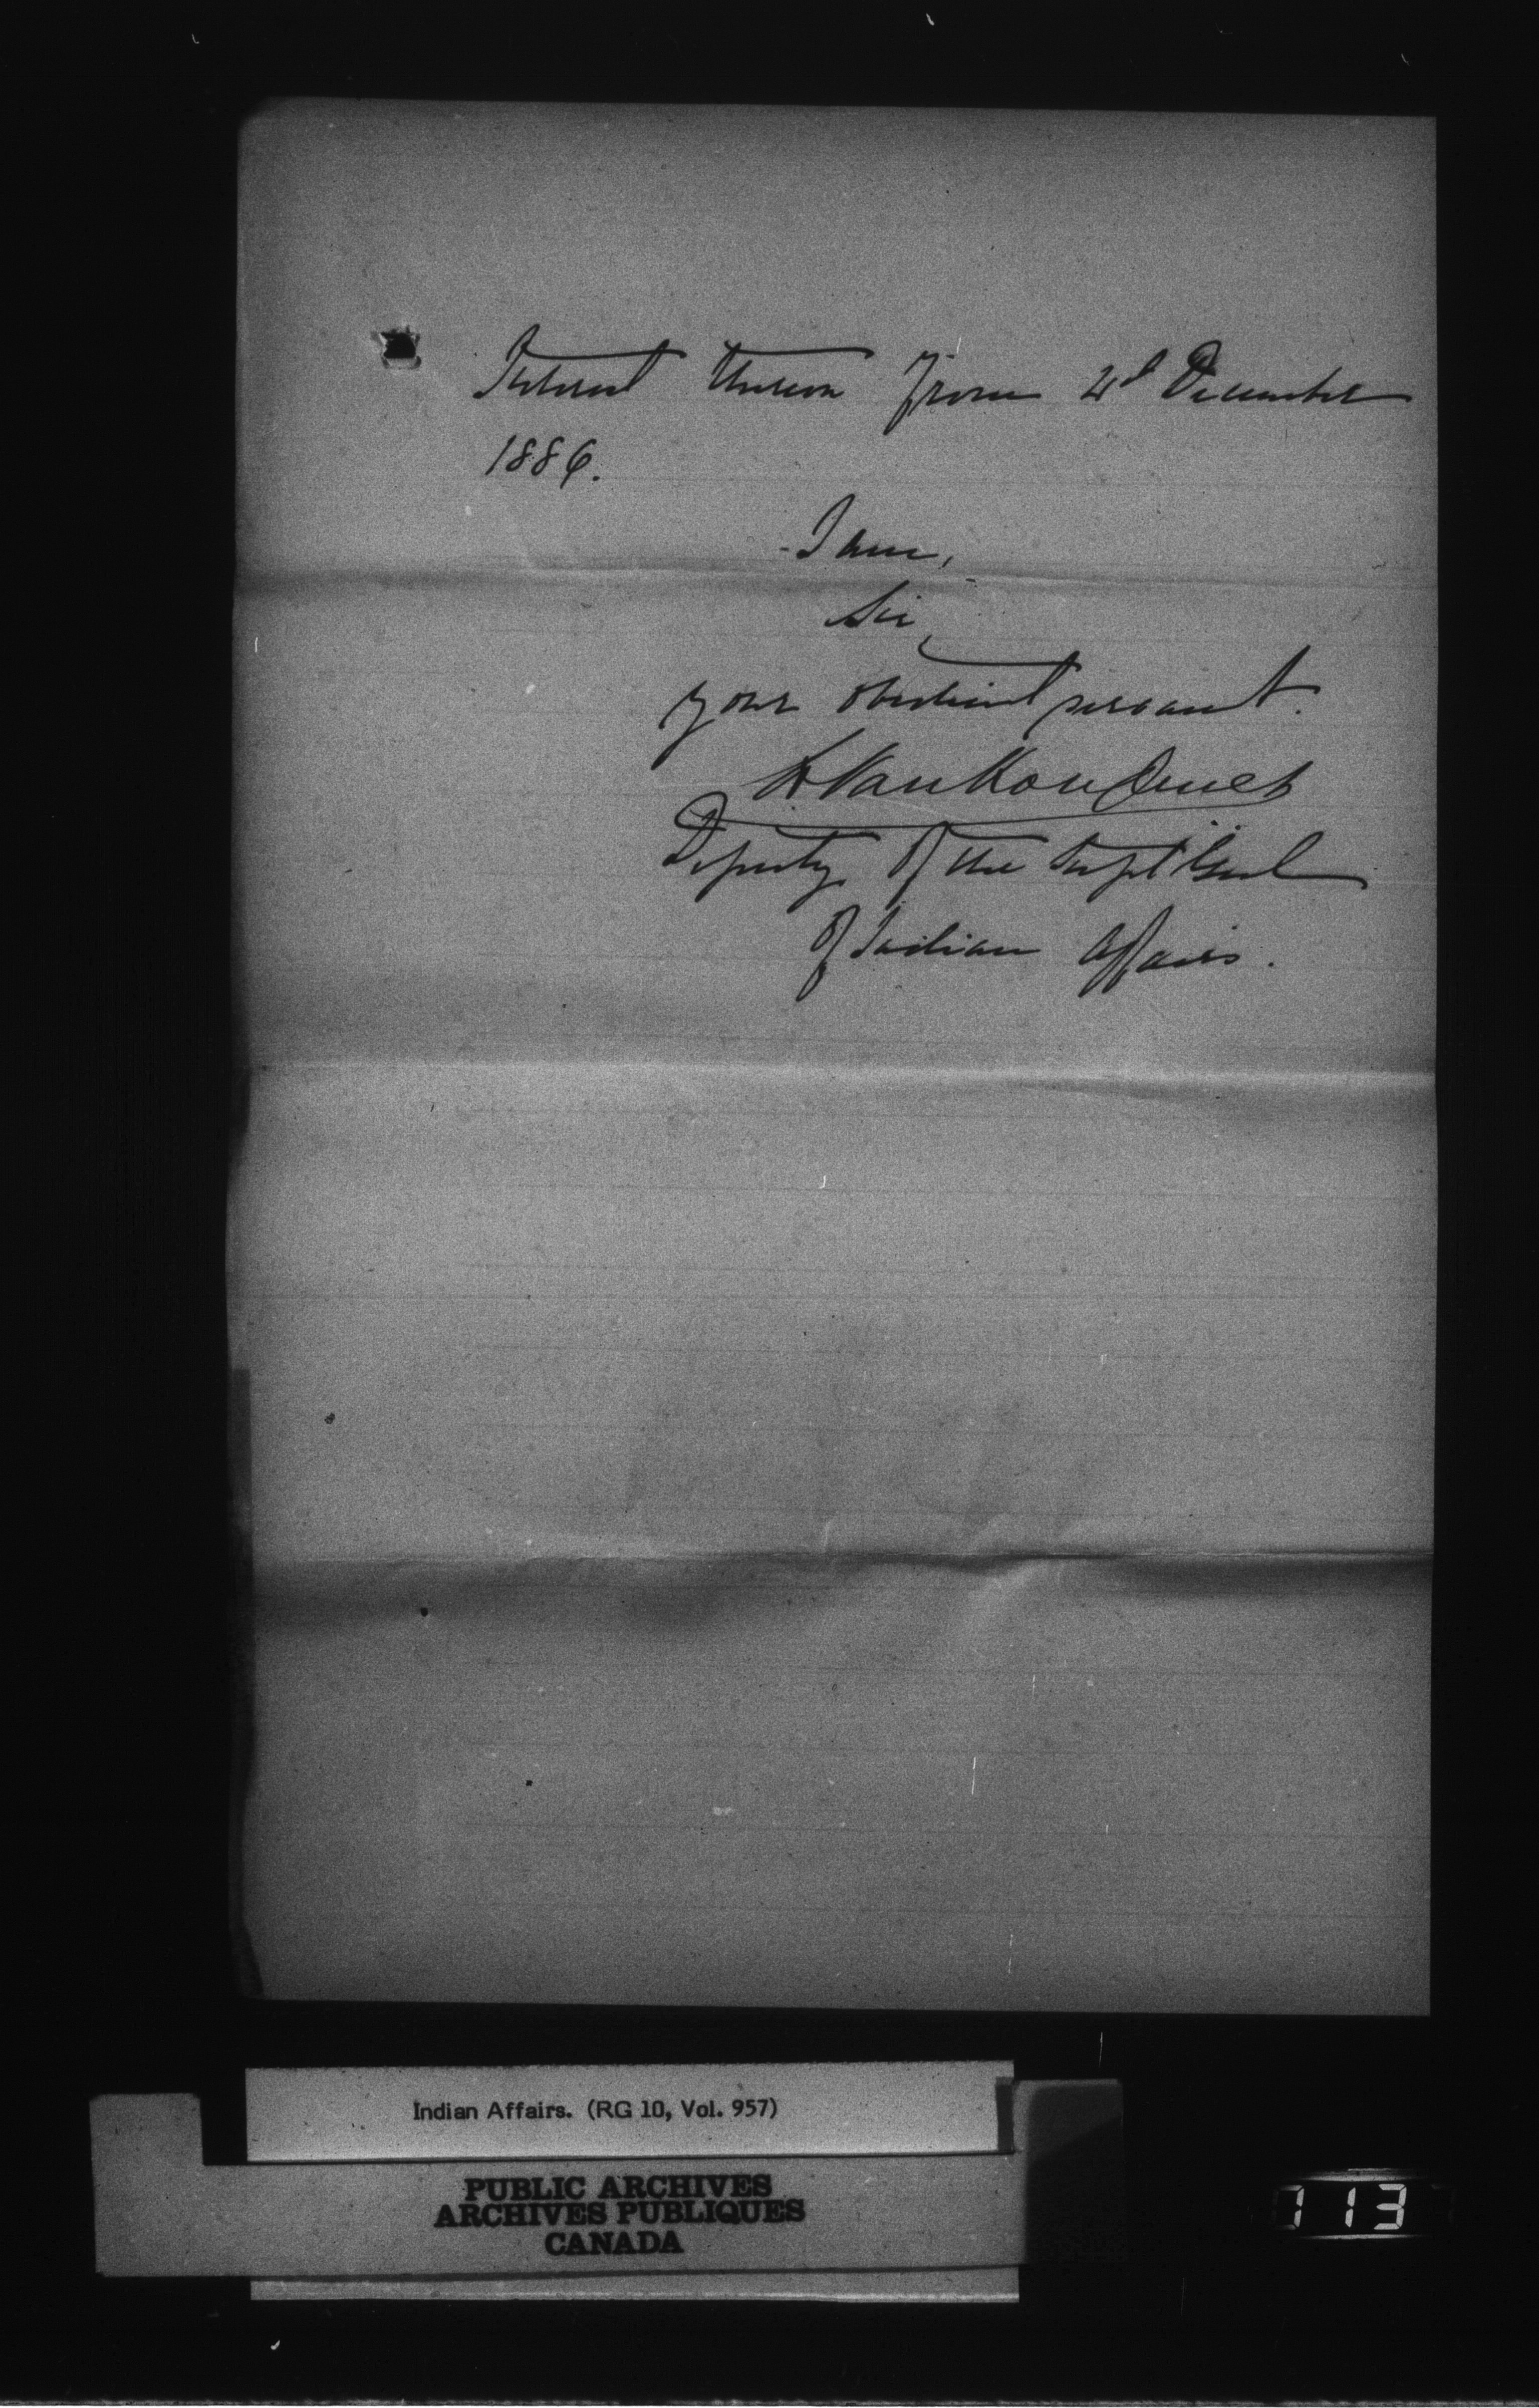 Interest thereon from 2d December
1886.
I am,
Sir,
your obedient servant.
L. VanKoughnet
Deputy of the Supt Genl
of Indian Affairs.
Indian Affairs. (RG 10, Vol. 957)
PUBLIC ARCHIVES
ARCHIVES PUBLIQUES
CANADA
113